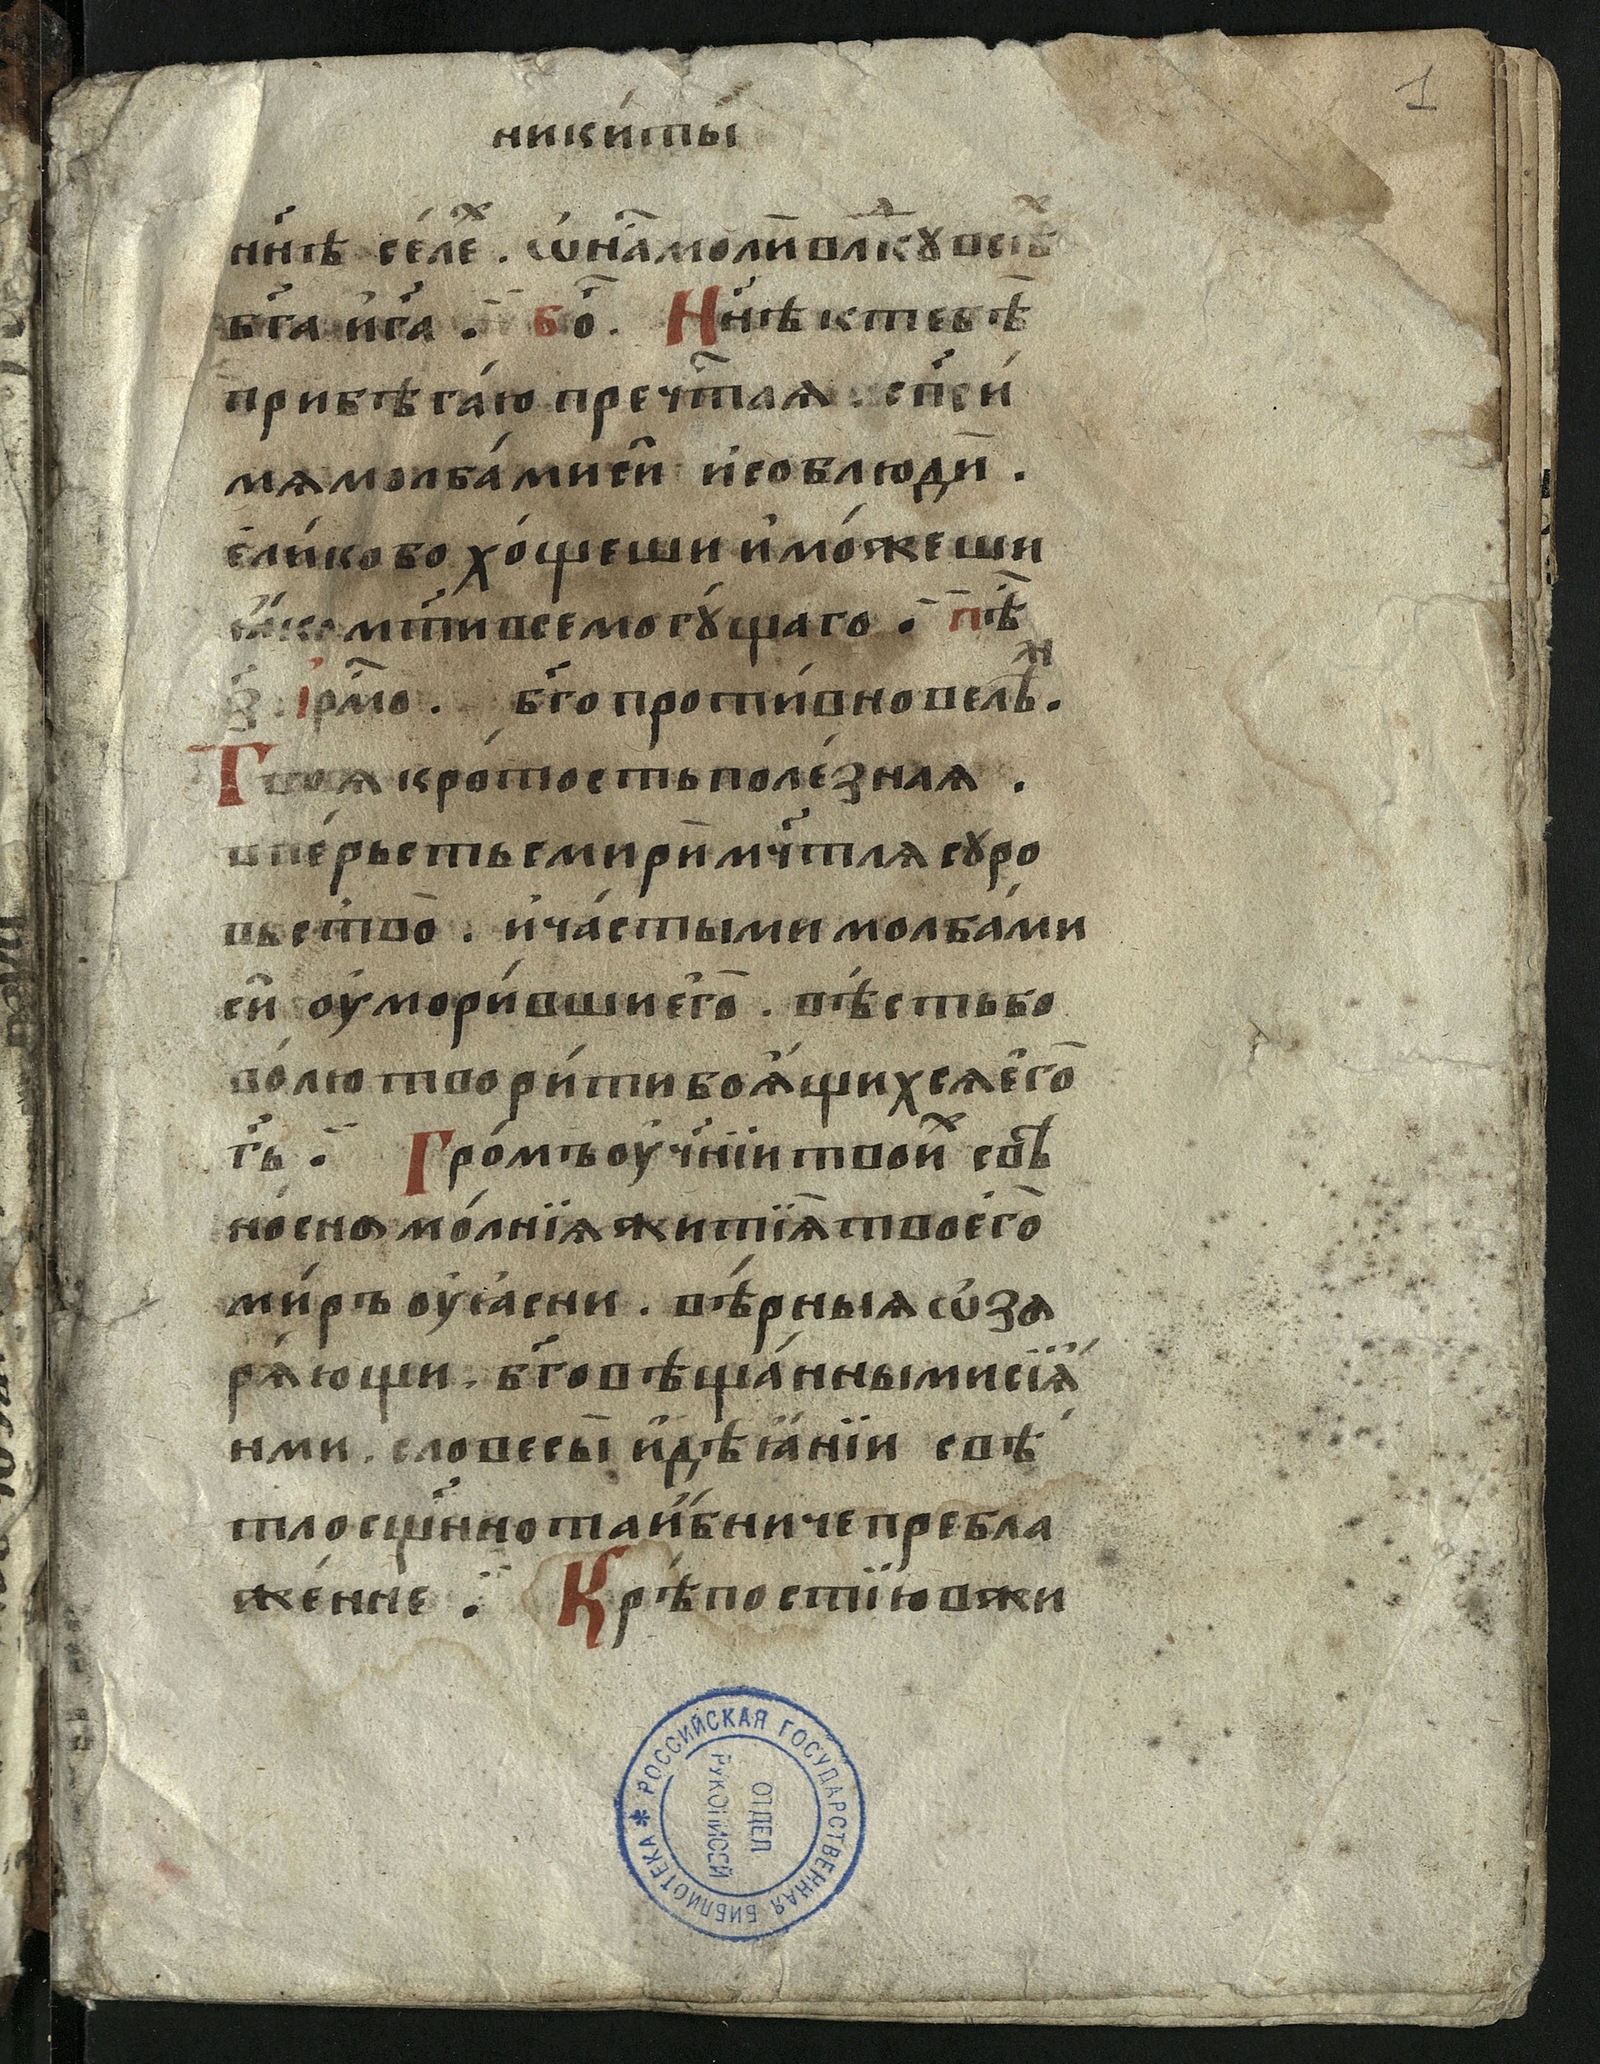 1
ники́ты
нн҃ѣ се́ле҃х . ѡ на҃ молѝ влⷣкꙋ всѣⷯ
бг҃а и҆ гⷭ҇а . бо҃ . Нн҃ѣ к тебѣ
прибѣга́ю пречⷭ҇тая . сп҃си́
мя молба́ми си̑ и҆ соблюди̑ .
ели́ко бо хо́щеши и҆ мо́жеши
ꙗко мт҃и всемогꙋ́щаго . пѣ҃
з҃ . і҆рмо҃ . бг҃опроти́вно велѣⷩ .
Твоя кро́тость поле́зная .
в пе́рьсть смирѝ мч҃тля сꙋро
вьство̀ . и҆ ча́стыми молба́ми
си̑ оу҆мори́вши его̀ . вѣ́сть бо
во́лю твори́ти боя́щихся его̀
гь҃ . Гро́мъ оу҆чн҃їи твои̑ⷯ свѣⷮ
но́сноя мо́лнїя житїя̀ твоего̀
ми́ръ оу҆ꙗсни . вѣ́рныя ѡ҆зя
ря́ющи . бг҃овѣща́нными сїя́
нми . словесы̀ и҆ дѣꙗ́нїи свѣ́
тло сщ҃нно таи́бниче пребла
же́нне . Крѣ́постїю в жи
РОССИЙСКАЯ ГОСУДАРСТВЕННАЯ БИБЛИОТЕКА *
ОТДЕЛ
РУКОПИСЕЙ